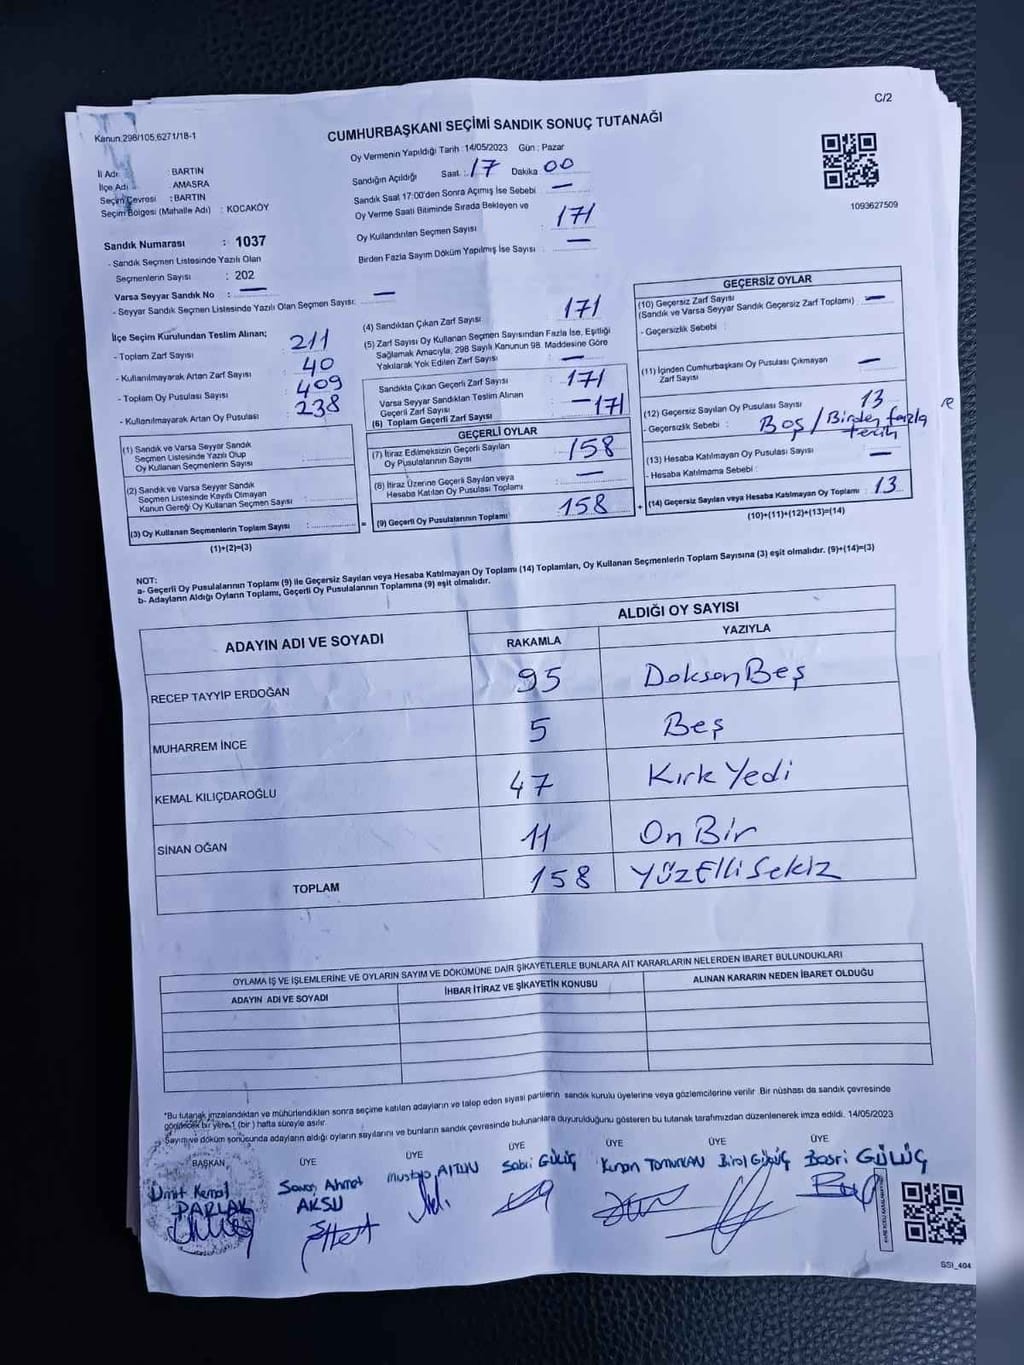 C/2
Kanun:298/105,6271/18-1
CUMHURBAŞKANI SEÇİMİ SANDIK SONUÇ TUTANAĞI
Oy Vermenin Yapıldığı Tarih :14/05/2023 Gün : Pazar
İl Adı : BARTIN
İlçe Adı : AMASRA
Seçim Çevresi : BARTIN
Seçim Bölgesi (Mahalle Adı) : KOCAKÖY
Sandığın Açıldığı Saat : 17 Dakika 00
Sandık Saat 17:00'den Sonra Açımış İse Sebebi —
Oy Verme Saati Bitiminde Sırada Bekleyen ve
Oy Kullandırılan Seçmen Sayısı 171
Birden Fazla Sayım Döküm Yapılmış İse Sayısı —
1093627509
Sandık Numarası : 1037
- Sandık Seçmen Listesinde Yazılı Olan
Seçmenlerin Sayısı : 202
Varsa Seyyar Sandık No : —
- Seyyar Sandık Seçmen Listesinde Yazılı Olan Seçmen Sayısı: —
İlçe Seçim Kurulundan Teslim Alınan;
- Toplam Zarf Sayısı 211
- Kullanılmayarak Artan Zarf Sayısı 40
- Toplam Oy Pusulası Sayısı 409
- Kullanılmayarak Artan Oy Pusulası 238
(1) Sandık ve Varsa Seyyar Sandık
Seçmen Listesinde Yazılı Olup
Oy Kullanan Seçmenlerin Sayısı
(2) Sandık ve Varsa Seyyar Sandık
Seçmen Listesinde Kayıtlı Olmayan
Kanun Gereği Oy Kullanan Seçmen Sayısı
(3) Oy Kullanan Seçmenlerin Toplam Sayısı :
(1)+(2)=(3)
(4) Sandıktan Çıkan Zarf Sayısı 171
(5) Zarf Sayısı Oy Kullanan Seçmen Sayısından Fazla İse, Eşitliği
Sağlamak Amacıyla, 298 Sayılı Kanunun 98. Maddesine Göre
Yakılarak Yok Edilen Zarf Sayısı —
Sandıkta Çıkan Geçerli Zarf Sayısı 171
Varsa Seyyar Sandıktan Teslim Alınan
Geçerli Zarf Sayısı —
(6) Toplam Geçerli Zarf Sayısı 171
GEÇERLİ OYLAR
(7) İtiraz Edilmeksizin Geçerli Sayılan
Oy Pusulalarının Sayısı 158
(8) İtiraz Üzerine Geçerli Sayılan veya
Hesaba Katılan Oy Pusulası Toplamı —
= (9) Geçerli Oy Pusulalarının Toplamı 158
GEÇERSİZ OYLAR
(10) Geçersiz Zarf Sayısı
(Sandık ve Varsa Seyyar Sandık Geçersiz Zarf Toplamı) —
- Geçersizlik Sebebi :
(11) İçinden Cumhurbaşkanı Oy Pusulası Çıkmayan
Zarf Sayısı —
(12) Geçersiz Sayılan Oy Pusulası Sayısı 13
- Geçersizlik Sebebi : Boş / Birden fazla
tercih
(13) Hesaba Katılmayan Oy Pusulası Sayısı —
- Hesaba Katılmama Sebebi :
+ (14) Geçersiz Sayılan veya Hesaba Katılmayan Oy Toplamı 13
(10)+(11)+(12)+(13)=(14)
NOT:
a- Geçerli Oy Pusulalarının Toplamı (9) ile Geçersiz Sayılan veya Hesaba Katılmayan Oy Toplamı (14) Toplamları, Oy Kullanan Seçmenlerin Toplam Sayısına (3) eşit olmalıdır. (9)+(14)=(3)
b- Adayların Aldığı Oyların Toplamı, Geçerli Oy Pusulalarının Toplamına (9) eşit olmalıdır.
ADAYIN ADI VE SOYADI
ALDIĞI OY SAYISI
RAKAMLA YAZIYLA
RECEP TAYYİP ERDOĞAN 95 Doksan Beş
MUHARREM İNCE 5 Beş
KEMAL KILIÇDAROĞLU 47 Kırk Yedi
SİNAN OĞAN 11 On Bir
TOPLAM 158 YüzElliSekiz
OYLAMA İŞ VE İŞLEMLERİNE VE OYLARIN SAYIM VE DÖKÜMÜNE DAİR ŞİKAYETLERLE BUNLARA AİT KARARLARIN NELERDEN İBARET BULUNDUKLARI
ADAYIN ADI VE SOYADI İHBAR İTİRAZ VE ŞİKAYETİN KONUSU ALINAN KARARIN NEDEN İBARET OLDUĞU
*Bu tutanak imzalandıktan ve mühürlendikten sonra seçime katılan adayların ve talep eden siyasi partilerin sandık kurulu üyelerine veya gözlemcilerine verilir. Bir nüshası da sandık çevresinde
görülecek bir yere 1 (bir) hafta süreyle asılır.
Sayım ve döküm sonucunda adayların aldığı oyların sayılarını ve bunların sandık çevresinde bulunanlara duyurulduğunu gösteren bu tutanak tarafımızdan düzenlenerek imza edildi. 14/05/2023
BAŞKAN ÜYE ÜYE ÜYE ÜYE ÜYE ÜYE
Ümit Kemal PARLAK
Savaş Ahmet AKSU
Mustafa ALTUN
Sabri GÜLÜÇ
Kenan TOMURKAN
Birol GÜLÜÇ
Basri GÜLÜÇ
SSI_404